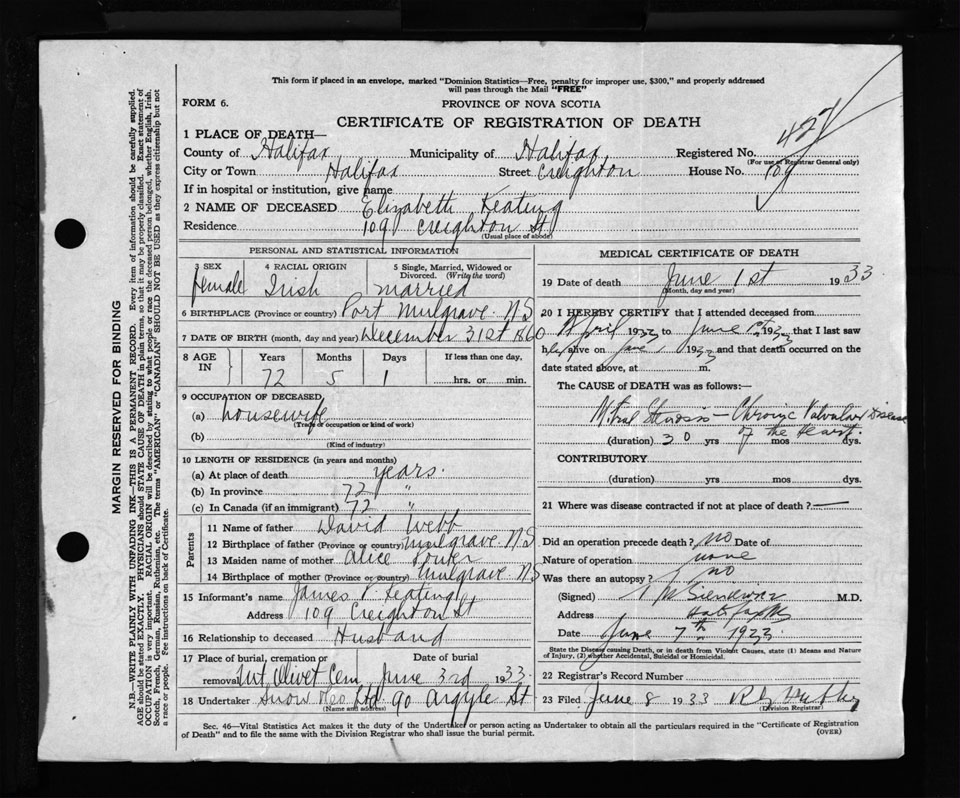 This form if placed in an envelope, marked "Dominion Statistics—Free, penalty for improper use, $300," and properly addressed
will pass through the Mail "FREE"
FORM 6.
PROVINCE OF NOVA SCOTIA
CERTIFICATE OF REGISTRATION OF DEATH
427
1 PLACE OF DEATH—
County of Halifax Municipality of Halifax Registered No.
(For use of Registrar General only)
City or Town Halifax Street Creighton House No. 109
If in hospital or institution, give name
2 NAME OF DECEASED Elizabeth Keating
Residence 109 Creighton St
(Usual place of abode)
PERSONAL AND STATISTICAL INFORMATION
3 SEX 4 RACIAL ORIGIN 5 Single, Married, Widowed or
Divorced. (Write the word)
female Irish married
6 BIRTHPLACE (Province or country) Port Mulgrave. NS
7 DATE OF BIRTH (month, day and year) December 31st 1860
8 AGE IN Years Months Days If less than one day,
72 5 1 ......hrs. or ......min.
9 OCCUPATION OF DECEASED
(a) housewife
(Trade or occupation or kind of work)
(b)
(Kind of industry)
10 LENGTH OF RESIDENCE (in years and months)
(a) At place of death years.
(b) In province 72 "
(c) In Canada (if an immigrant) 72 "
Parents
11 Name of father David Webb
12 Birthplace of father (Province or country) Mulgrave. NS
13 Maiden name of mother Alice
14 Birthplace of mother (Province or country) Mulgrave. NS
15 Informant's name James P. Keating
Address 109 Creighton St
16 Relationship to deceased Husband
17 Place of burial, cremation or Date of burial
removal Mt Olivet Cem June 3rd 1933
18 Undertaker Snow & Co Ltd 90 Argyle St
(Name and address)
MEDICAL CERTIFICATE OF DEATH
19 Date of death June 1st 1933
(Month, day and year)
20 I HEREBY CERTIFY that I attended deceased from
April 1933 to June 1st 1933 that I last saw
her alive on June 1 1933 and that death occurred on the
date stated above, at ............ m.
The CAUSE OF DEATH was as follows:—
Mitral Stenosis — Chronic Valvular Disease
of the Heart.
(duration) 30 yrs mos dys.
CONTRIBUTORY
(duration) yrs mos dys.
21 Where was disease contracted if not at place of death? —
Did an operation precede death? no Date of
Nature of operation none
Was there an autopsy? no
(Signed) M.D.
Address Halifax NS
Date June 7th 1933
State the Disease causing Death, or in death from Violent Causes, state (1) Means and
Nature of Injury, (2) whether Accidental, Suicidal or Homicidal.
22 Registrar's Record Number
23 Filed June 8 1933
(Division Registrar)
Sec. 46—Vital Statistics Act makes it the duty of the Undertaker or person acting as Undertaker to obtain all the particulars required in the "Certificate of Registration
of Death" and to file the same with the Division Registrar who shall issue the burial permit.
(OVER)
MARGIN RESERVED FOR BINDING
N.B.—WRITE PLAINLY WITH UNFADING INK—THIS IS A PERMANENT RECORD. Every item of information should be carefully supplied.
AGE should be stated EXACTLY. PHYSICIANS should STATE CAUSE OF DEATH in plain terms, so that it may be properly classified. Exact statement of
OCCUPATION is very important. RACIAL ORIGIN will be described by stating to what people or race the deceased person belonged, whether English, Irish,
Scotch, French, German, Russian, Ruthenian, etc. The terms "AMERICAN" or "CANADIAN" SHOULD NOT BE USED as they express citizenship but not
a race or people. See instructions on back of Certificate.